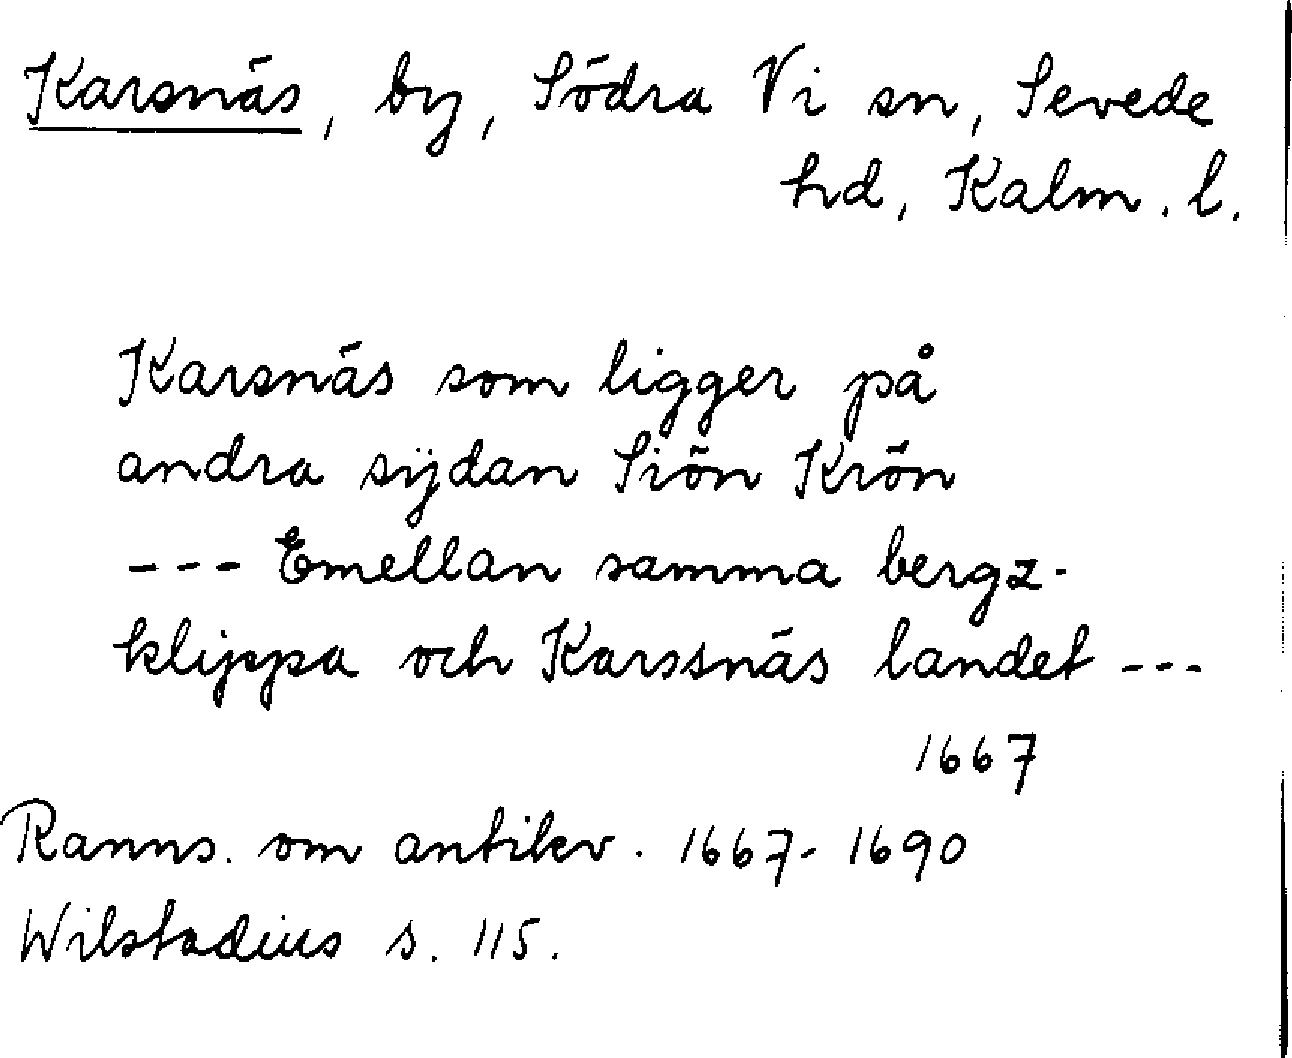 Karsnäs, by, Södra Vi sn, Sevede
hd, Kalm. l.
Karsnäs som ligger på
andra sijdan Siön Krön
--- Emellan samma bergz-
klippa och Karssnäs landet ---
1667
Ranns. om antikv. 1667-1690
Wilstadius s. 115.